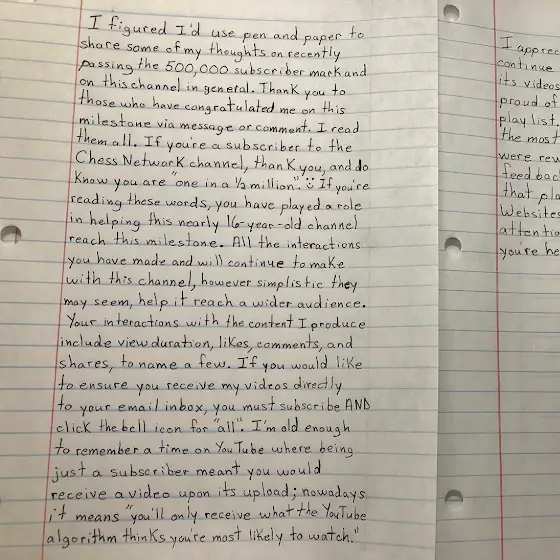 I figured I'd use pen and paper to
share some of my thoughts on recently
passing the 500,000 subscriber mark and
on this channel in general. Thank you to
those who have congratulated me on this
milestone via message or comment. I read
them all. If you're a subscriber to the
Chess Network channel, thank you, and do
know you are "one in a ½ million". :) If you're
reading these words, you have played a role
in helping this nearly 16-year-old channel
reach this milestone. All the interactions
you have made and will continue to make
with this channel, however simplistic they
may seem, help it reach a wider audience.
Your interactions with the content I produce
include view duration, likes, comments, and
shares, to name a few. If you would like
to ensure you receive my videos directly
to your email inbox, you must subscribe AND
click the bell icon for "all". I'm old enough
to remember a time on YouTube where being
just a subscriber meant you would
receive a video upon its upload; nowadays
it means "you'll only receive what the YouTube
algorithm thinks you're most likely to watch."
I
continue
its videos
proud of
playlist.
the most
were
that
Websites
you're